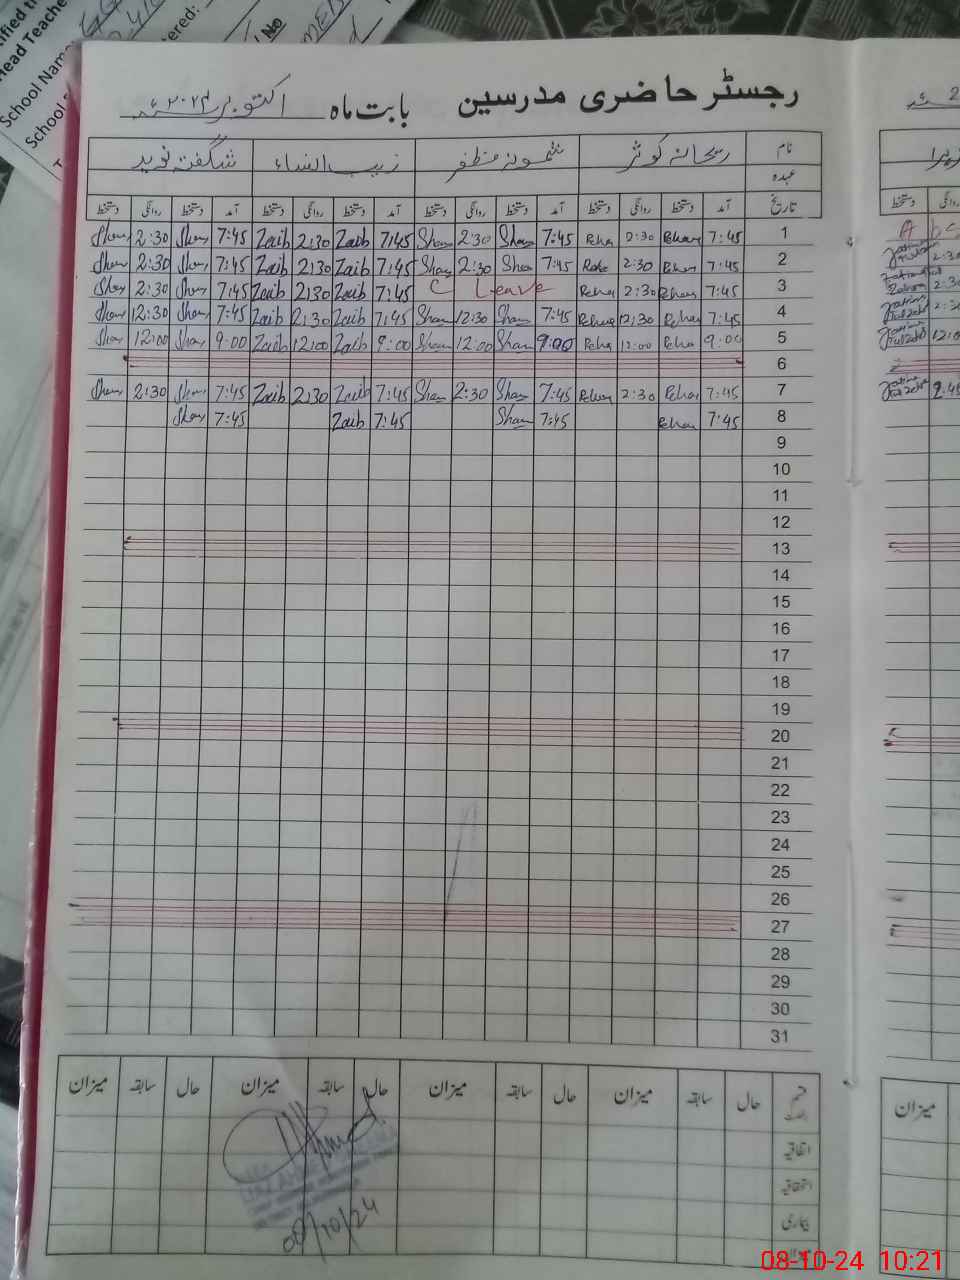 Head Teache
School Nam
School
ered:
رجسٹر حاضری مدرسین بابت ماہ اکتوبر ۲۰۲۴ء
نام ریحانہ کوثر شمونہ مظفر زیب النساء شگفتہ نوید
عہدہ
تاریخ آمد دستخط روانگی دستخط آمد دستخط روانگی دستخط آمد دستخط روانگی دستخط آمد دستخط روانگی دستخط
1 7:45 Rehan 2:30 Reha 7:45 Sham 2:30 Sham 7:45 Zaib 2:30 Zaib 7:45 Sham 2:30 Sham
2 7:45 Rehan 2:30 Rehe 7:45 Sham 2:30 Sham 7:45 Zaib 2:30 Zaib 7:45 Sham 2:30 Sham
3 7:45 Rehan 2:30 Reha C Leave 7:45 Zaib 2:30 Zaib 7:45 Sham 2:30 Sham
4 7:45 Reha 12:30 Rehan 7:45 Sham 12:30 Sham 7:45 Zaib 12:30 Zaib 7:45 Sham 12:30 Sham
5 9:00 Reha 12:00 Reha 9:00 Sham 12:00 Sham 9:00 Zaib 12:00 Zaib 9:00 Sham 12:00 Sham
6
7 7:45 Rehan 2:30 Rehan 7:45 Sham 2:30 Sham 7:45 Zaib 2:30 Zaib 7:45 Sham 2:30 Sham
8 7:45 Rehan 7:45 Sham 7:45 Zaib 7:45 Sham
9
10
11
12
13
14
15
16
17
18
19
20
21
22
23
24
25
26
27
28
29
30
31
حال سابقہ میزان حال سابقہ میزان حال سابقہ میزان حال سابقہ میزان
اتفاقیہ
استحقاقیہ
بیماری
08/10/24
میزان
08-10-24 10:21